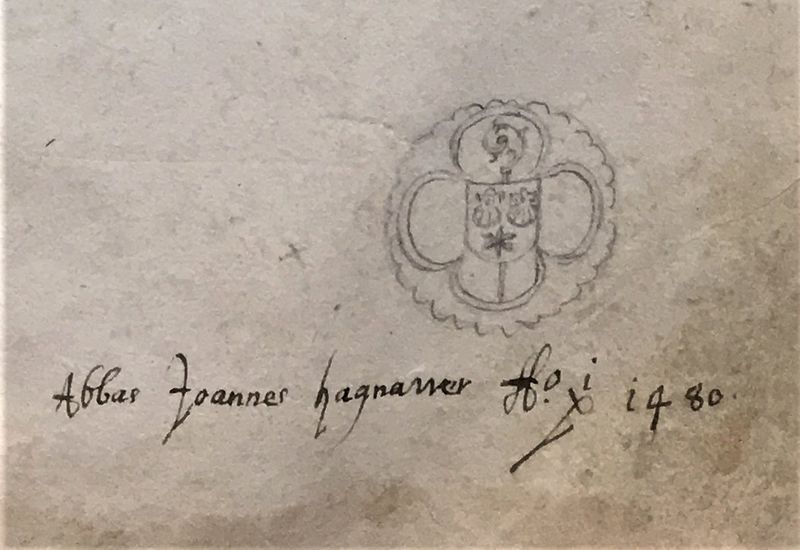 Abbas Joannes hagnawer Aº. Xi 1480.